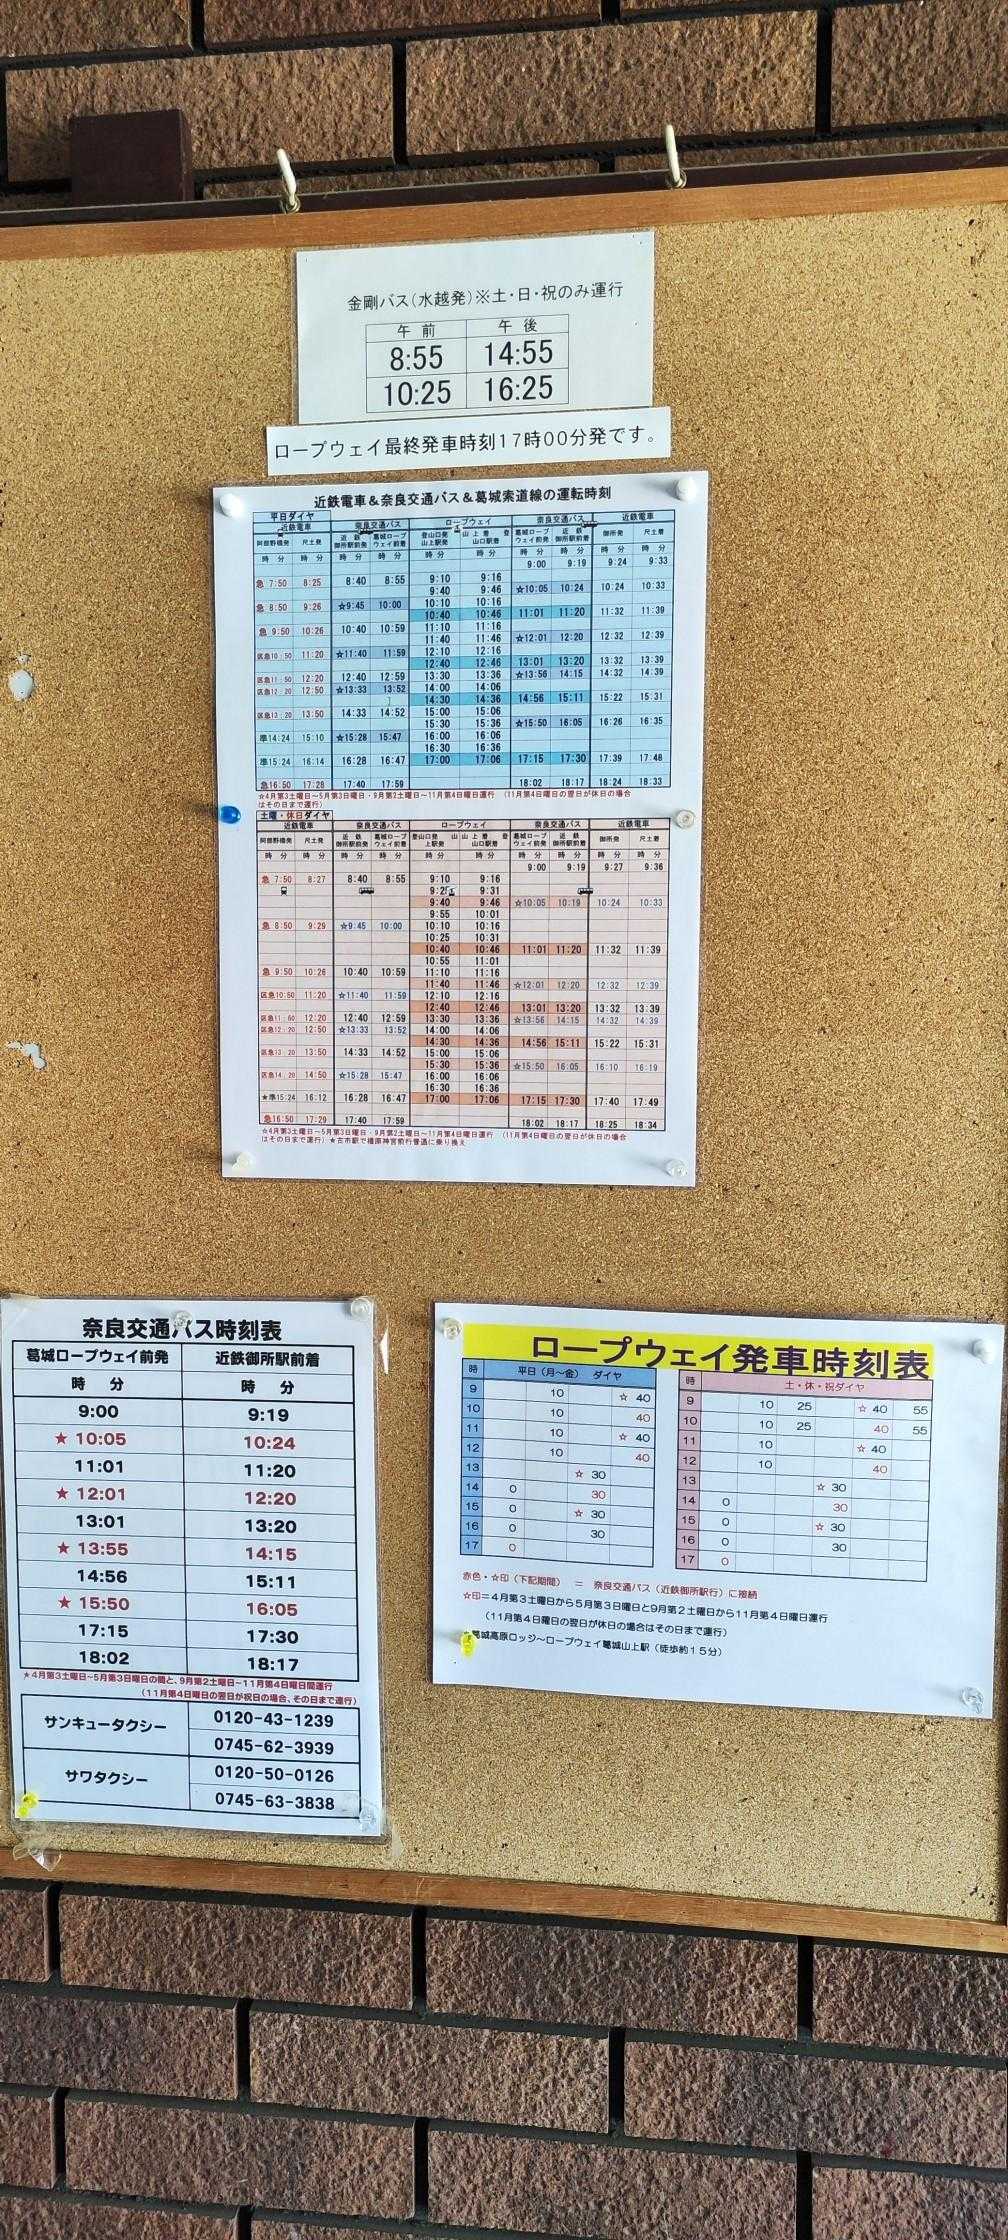 金剛バス(水越発)※土・日・祝のみ運行
午前 午後
8:55 14:55
10:25 16:25
ロープウェイ最終発車時刻17時00分発です。
近鉄電車&奈良交通バス&葛城索道線の運転時刻
平日ダイヤ
近鉄電車 奈良交通バス ロープウェイ 奈良交通バス 近鉄電車
阿部野橋発 尺土発 近鉄御所駅前発 葛城ロープウェイ前着 登山口発山上駅発 山上着登山口駅着 葛城ロープウェイ前発 近鉄御所駅前着 御所発 尺土着
時 分 時 分 時 分 時 分 時 分 時 分 時 分 時 分 時 分 時 分
9:00 9:19 9:24 9:33
急 7:50 8:25 8:40 8:55 9:10 9:16
9:40 9:46 ☆10:05 10:24 10:24 10:33
急 8:50 9:26 ☆9:45 10:00 10:10 10:16
10:40 10:46 11:01 11:20 11:32 11:39
急 9:50 10:26 10:40 10:59 11:10 11:16
11:40 11:46 ☆12:01 12:20 12:32 12:39
区急10:50 11:20 ☆11:40 11:59 12:10 12:16
12:40 12:46 13:01 13:20 13:32 13:39
区急11:50 12:20 12:40 12:59 13:30 13:36 ☆13:56 14:15 14:32 14:39
区急12:20 12:50 ☆13:33 13:52 14:00 14:06
14:30 14:36 14:56 15:11 15:22 15:31
区急13:20 13:50 14:33 14:52 15:00 15:06
15:30 15:36 ☆15:50 16:05 16:26 16:35
準14:24 15:10 ☆15:28 15:47 16:00 16:06
16:30 16:36
準15:24 16:14 16:28 16:47 17:00 17:06 17:15 17:30 17:39 17:48
急16:50 17:28 17:40 17:59 18:02 18:17 18:24 18:33
☆4月第3土曜日~5月第3日曜日・9月第2土曜日~11月第4日曜日運行 (11月第4日曜日の翌日が休日の場合
はその日まで運行)
土曜・休日ダイヤ
近鉄電車 奈良交通バス ロープウェイ 奈良交通バス 近鉄電車
阿部野橋発 尺土発 近鉄御所駅前発 葛城ロープウェイ前着 登山口発 山上駅発 山上着 登山口駅着 葛城ロープウェイ前発 近鉄御所駅前着 御所発 尺土着
時 分 時 分 時 分 時 分 時 分 時 分 時 分 時 分 時 分 時 分
9:00 9:19 9:27 9:36
急 7:50 8:27 8:40 8:55 9:10 9:16
9:31
9:40 9:46 ☆10:05 10:19 10:24 10:33
9:55 10:01
急 8:50 9:29 ☆9:45 10:00 10:10 10:16
10:25 10:31
10:40 10:46 11:01 11:20 11:32 11:39
10:55 11:01
急 9:50 10:26 10:40 10:59 11:10 11:16
11:40 11:46 ☆12:01 12:20 12:32 12:39
区急10:50 11:20 ☆11:40 11:59 12:10 12:16
12:40 12:46 13:01 13:20 13:32 13:39
区急11:50 12:20 12:40 12:59 13:30 13:36 ☆13:56 14:15 14:32 14:39
区急12:20 12:50 ☆13:33 13:52 14:00 14:06
14:30 14:36 14:56 15:11 15:22 15:31
区急13:20 13:50 14:33 14:52 15:00 15:06
15:30 15:36 ☆15:50 16:05 16:10 16:19
区急14:20 14:50 ☆15:28 15:47 16:00 16:06
16:30 16:36
★準15:24 16:12 16:28 16:47 17:00 17:06 17:15 17:30 17:40 17:49
急16:50 17:29 17:40 17:59 18:02 18:17 18:25 18:34
☆4月第3土曜日~5月第3日曜日・9月第2土曜日~11月第4日曜日運行 (11月第4日曜日の翌日が休日の場合
はその日まで運行)★古市駅で橿原神宮前行普通に乗り換え
奈良交通バス時刻表
葛城ロープウェイ前発 近鉄御所駅前着
時 分 時 分
9:00 9:19
★ 10:05 10:24
11:01 11:20
★ 12:01 12:20
13:01 13:20
★ 13:55 14:15
14:56 15:11
★ 15:50 16:05
17:15 17:30
18:02 18:17
★4月第3土曜日~5月第3日曜日の間と、9月第2土曜日~11月第4日曜日間運行
(11月第4日曜日の翌日が祝日の場合、その日まで運行)
サンキュータクシー 0120-43-1239
0745-62-3939
サワタクシー 0120-50-0126
0745-63-3838
ロープウェイ発車時刻表
時 平日(月~金) ダイヤ
9 10 ☆ 40
10 10 40
11 10 ☆ 40
12 10 40
13 ☆ 30
14 0 30
15 0 ☆ 30
16 0 30
17 0
時 土・休・祝ダイヤ
9 10 25 ☆ 40 55
10 10 25 40 55
11 10 ☆ 40
12 10 40
13 ☆ 30
14 0 30
15 0 ☆ 30
16 0 30
17 0
赤色・☆印(下記期間) = 奈良交通バス(近鉄御所駅行)に接続
☆印=4月第3土曜日から5月第3日曜日と9月第2土曜日から11月第4日曜日運行
(11月第4日曜日の翌日が休日の場合はその日まで運行)
葛城高原ロッジ~ロープウェイ葛城山上駅(徒歩約15分)